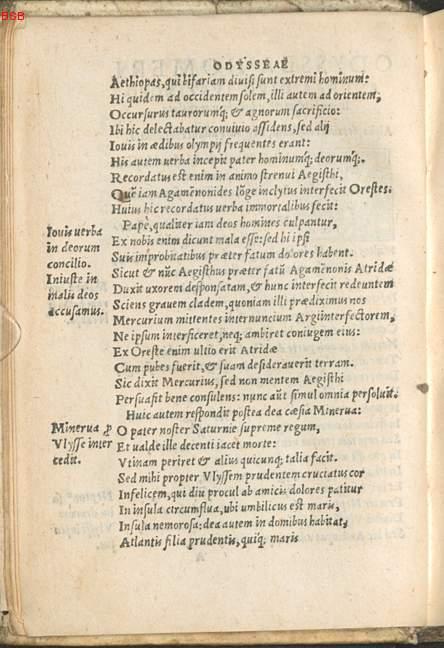 BSB
ODYSSEAE
Aethiopas, qui bifariam divisi sunt extremi hominum:
Hi quidem ad occidentem solem, illi autem ad orientem,
Occursurus taurorumq́; & agnorum sacrificio:
Ibi hic delectabatur conuiuio assidens, sed alij
Iouis in ædibus olympij frequentes erant:
His autem verba incepit pater hominumq́; deorumq́;.
Recordatus est enim in animo strenui Aegisthi,
Quē iam Agamēnonides lōge inclytus interfecit Orestes:
Huius hic recordatus verba immortalibus fecit:
Papè, qualiter iam deos homines culpantur,
Iouis verba
in deorum
concilio.
Iniuste in
malis deos
accusamus.
Ex nobis enim dicunt mala esse: sed hi ipsi
Suis improbitatibus præter fatum dolores habent.
Sicut & nūc Aegisthus præter fatū Agamēnonis Atridæ
Duxit uxorem desponsatam, & hunc interfecit redeuntem
Sciens grauem cladem, quoniam illi prædiximus nos
Mercurium mittentes internuncium Argiinterfectorem,
Ne ipsum interficeret, neq; ambiret coniugem eius:
Ex Oreste enim ultio erit Atridæ
Cum pubes fuerit, & suam desiderauerit terram.
Sic dixit Mercurius, sed non mentem Aegisthi
Persuasit bene consulens: nunc aūt simul omnia persoluit.
Huic autem respondit postea dea cæsia Minerua:
Minerua ꝓ
Vlysse inter
cedit.
O pater noster Saturnie supreme regum,
Et valde ille decenti iacet morte:
Vtinam periret & alius quicunq; talia facit.
Sed mihi propter Vlyssem prudentem cruciatus cor
Infelicem, qui diu procul ab amicis dolores patitur
In insula circumflua, ubi umbilicus est maris,
Insula nemorosa: dea autem in domibus habitat,
Atlantis filia prudentis, quiq; maris